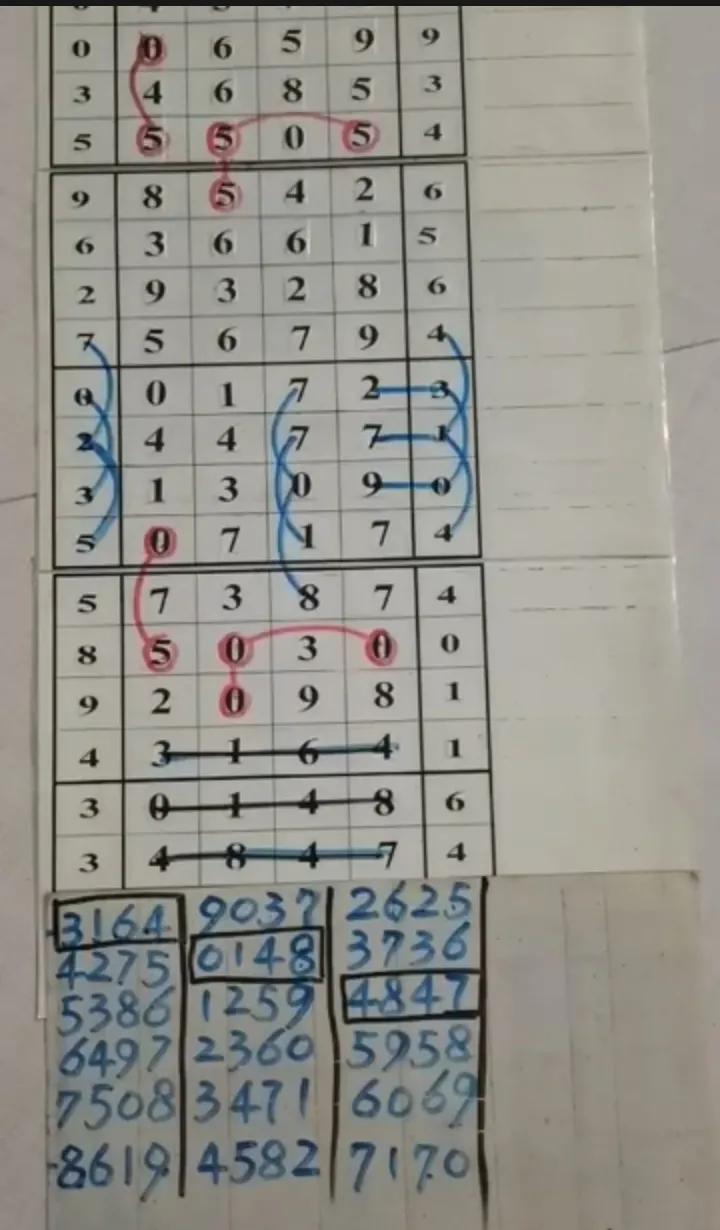 0 0 6 5 9 9
3 4 6 8 5 3
5 5 5 0 5 4
9 8 5 4 2 6
6 3 6 6 1 5
2 9 3 2 8 6
7 5 6 7 9 4
0 0 1 7 2 3
2 4 4 7 7 1
3 1 3 0 9 0
5 0 7 1 7 4
5 7 3 8 7 4
8 5 0 3 0 0
9 2 0 9 8 1
4 3 1 6 4 1
3 0 1 4 8 6
3 4 8 4 7 4
3164 9037 2625
4275 0148 3736
5386 1259 4847
6497 2360 5958
7508 3471 6069
8619 4582 7170